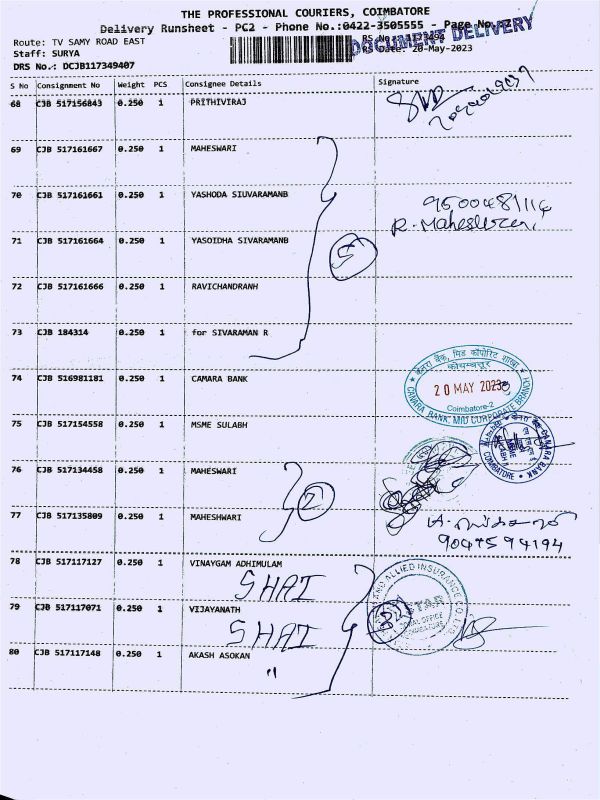 THE PROFESSIONAL COURIERS, COIMBATORE
Delivery Runsheet - PC2 - Phone No.:0422-3505555 - Page No.
DOCUMENT DELIVERY
Route: TV SAMY ROAD EAST
Staff: SURYA
20-May-2023
DRS No.: DCJB117349407
S No Consignment No Weight PCS Consignee Details Signature
68 CJB 517156843 0.250 1 PRITHIVIRAJ
69 CJB 517161667 0.250 1 MAHESWARI
70 CJB 517161661 0.250 1 YASHODA SIUVARAMANB
9500481114
R. Maheshwari
71 CJB 517161664 0.250 1 YASOIDHA SIVARAMANB
5
72 CJB 517161666 0.250 1 RAVICHANDRANH
73 CJB 184314 0.250 1 for SIVARAMAN R
74 CJB 516981181 0.250 1 CAMARA BANK
केनरा बैंक, मिड कॉर्पोरेट शाखा
कोयम्बत्तूर
20 MAY 2023
Coimbatore-2
CANARA BANK, MID CORPORATE BRANCH
75 CJB 517154558 0.250 1 MSME SULABH
CANARA BANK
COIMBATORE
76 CJB 517134458 0.250 1 MAHESWARI
2
77 CJB 517135809 0.250 1 MAHESHWARI
9047594194
78 CJB 517117127 0.250 1 VINAYGAM ADHIMULAM
SHAI
AND ALLIED INSURANCE CO. LTD
STAR
ZONAL OFFICE
COIMBATORE
79 CJB 517117071 0.250 1 VIJAYANATH
SHAI
3
80 CJB 517117148 0.250 1 AKASH ASOKAN
"